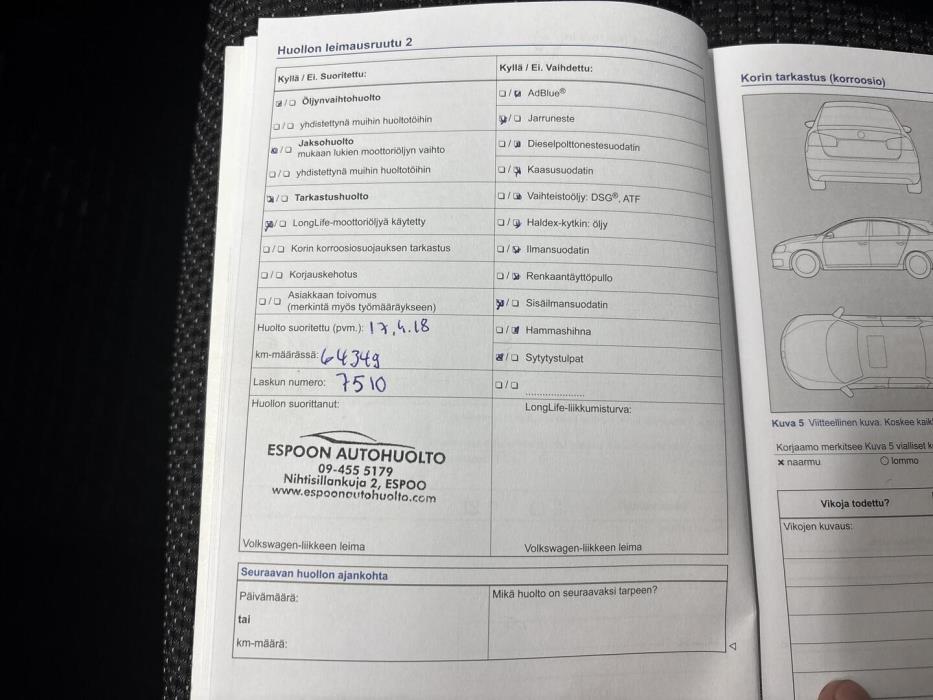 Huollon leimausruutu 2
Kyllä / Ei. Suoritettu:
Öljynvaihtohuolto
yhdistettynä muihin huoltotöihin
Jaksohuolto
mukaan lukien moottoriöljyn vaihto
yhdistettynä muihin huoltotöihin
Tarkastushuolto
LongLife-moottoriöljyä käytetty
Korin korroosiosuojauksen tarkastus
Korjauskehotus
Asiakkaan toivomus
(merkintä myös työmääräykseen)
Huolto suoritettu (pvm.): 17.4.18
km-määrässä: 64349
Laskun numero: 7510
Huollon suorittanut:
ESPOON AUTOHUOLTO
09-455 5179
Nihtisillankuja 2, ESPOO
www.espoonautohuolto.com
Volkswagen-liikkeen leima
Kyllä / Ei. Vaihdettu:
AdBlue®
Jarruneste
Dieselpolttonestesuodatin
Kaasusuodatin
Vaihteistoöljy: DSG®, ATF
Haldex-kytkin: öljy
Ilmansuodatin
Renkaantäyttöpullo
Sisäilmansuodatin
Hammashihna
Sytytystulpat
LongLife-liikkumisturva:
Volkswagen-liikkeen leima
Seuraavan huollon ajankohta
Päivämäärä:
tai
km-määrä:
Mikä huolto on seuraavaksi tarpeen?
Korin tarkastus (korroosio)
Kuva 5 Viitteellinen kuva. Koskee
Korjaamo merkitsee Kuva 5 vialliset
x naarmu O lommo
Vikoja todettu?
Vikojen kuvaus: